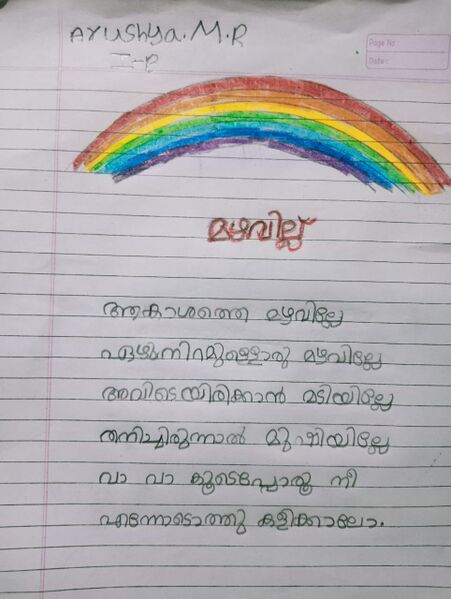 Ayushya.M.R
I-B
Page No :
Date :
മഴവില്ല്
ആകാശത്തെ മഴവില്ലേ
ഏഴുനിറമുള്ളൊരു മഴവില്ലേ
അവിടെയിരിക്കാൻ മടിയില്ലേ
തനിച്ചിരുന്നാൽ മുഷിയില്ലേ
വാ വാ കൂടെപ്പോരൂ നീ
എന്നോടൊത്തു കളിക്കാലോ.